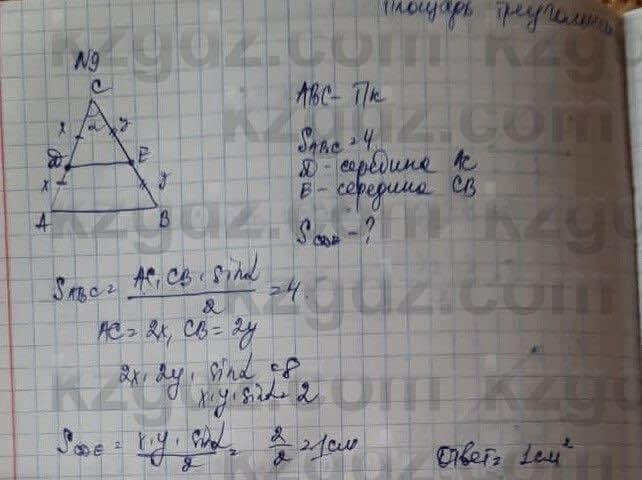 Площадь треугольника
N9
C
x α y
D E
x y
A B
ABC - Пк
S ABC = 4
D - середина AC
E - середина CB
S CDE - ?
S ABC = AC · CB · sinα / 2 = 4.
AC = 2x, CB = 2y
2x · 2y · sinα = 8
x · y · sinα = 2
S CDE = x · y · sinα / 2 = 2 / 2 = 1 см
Ответ = 1 см²
kzgdz.com